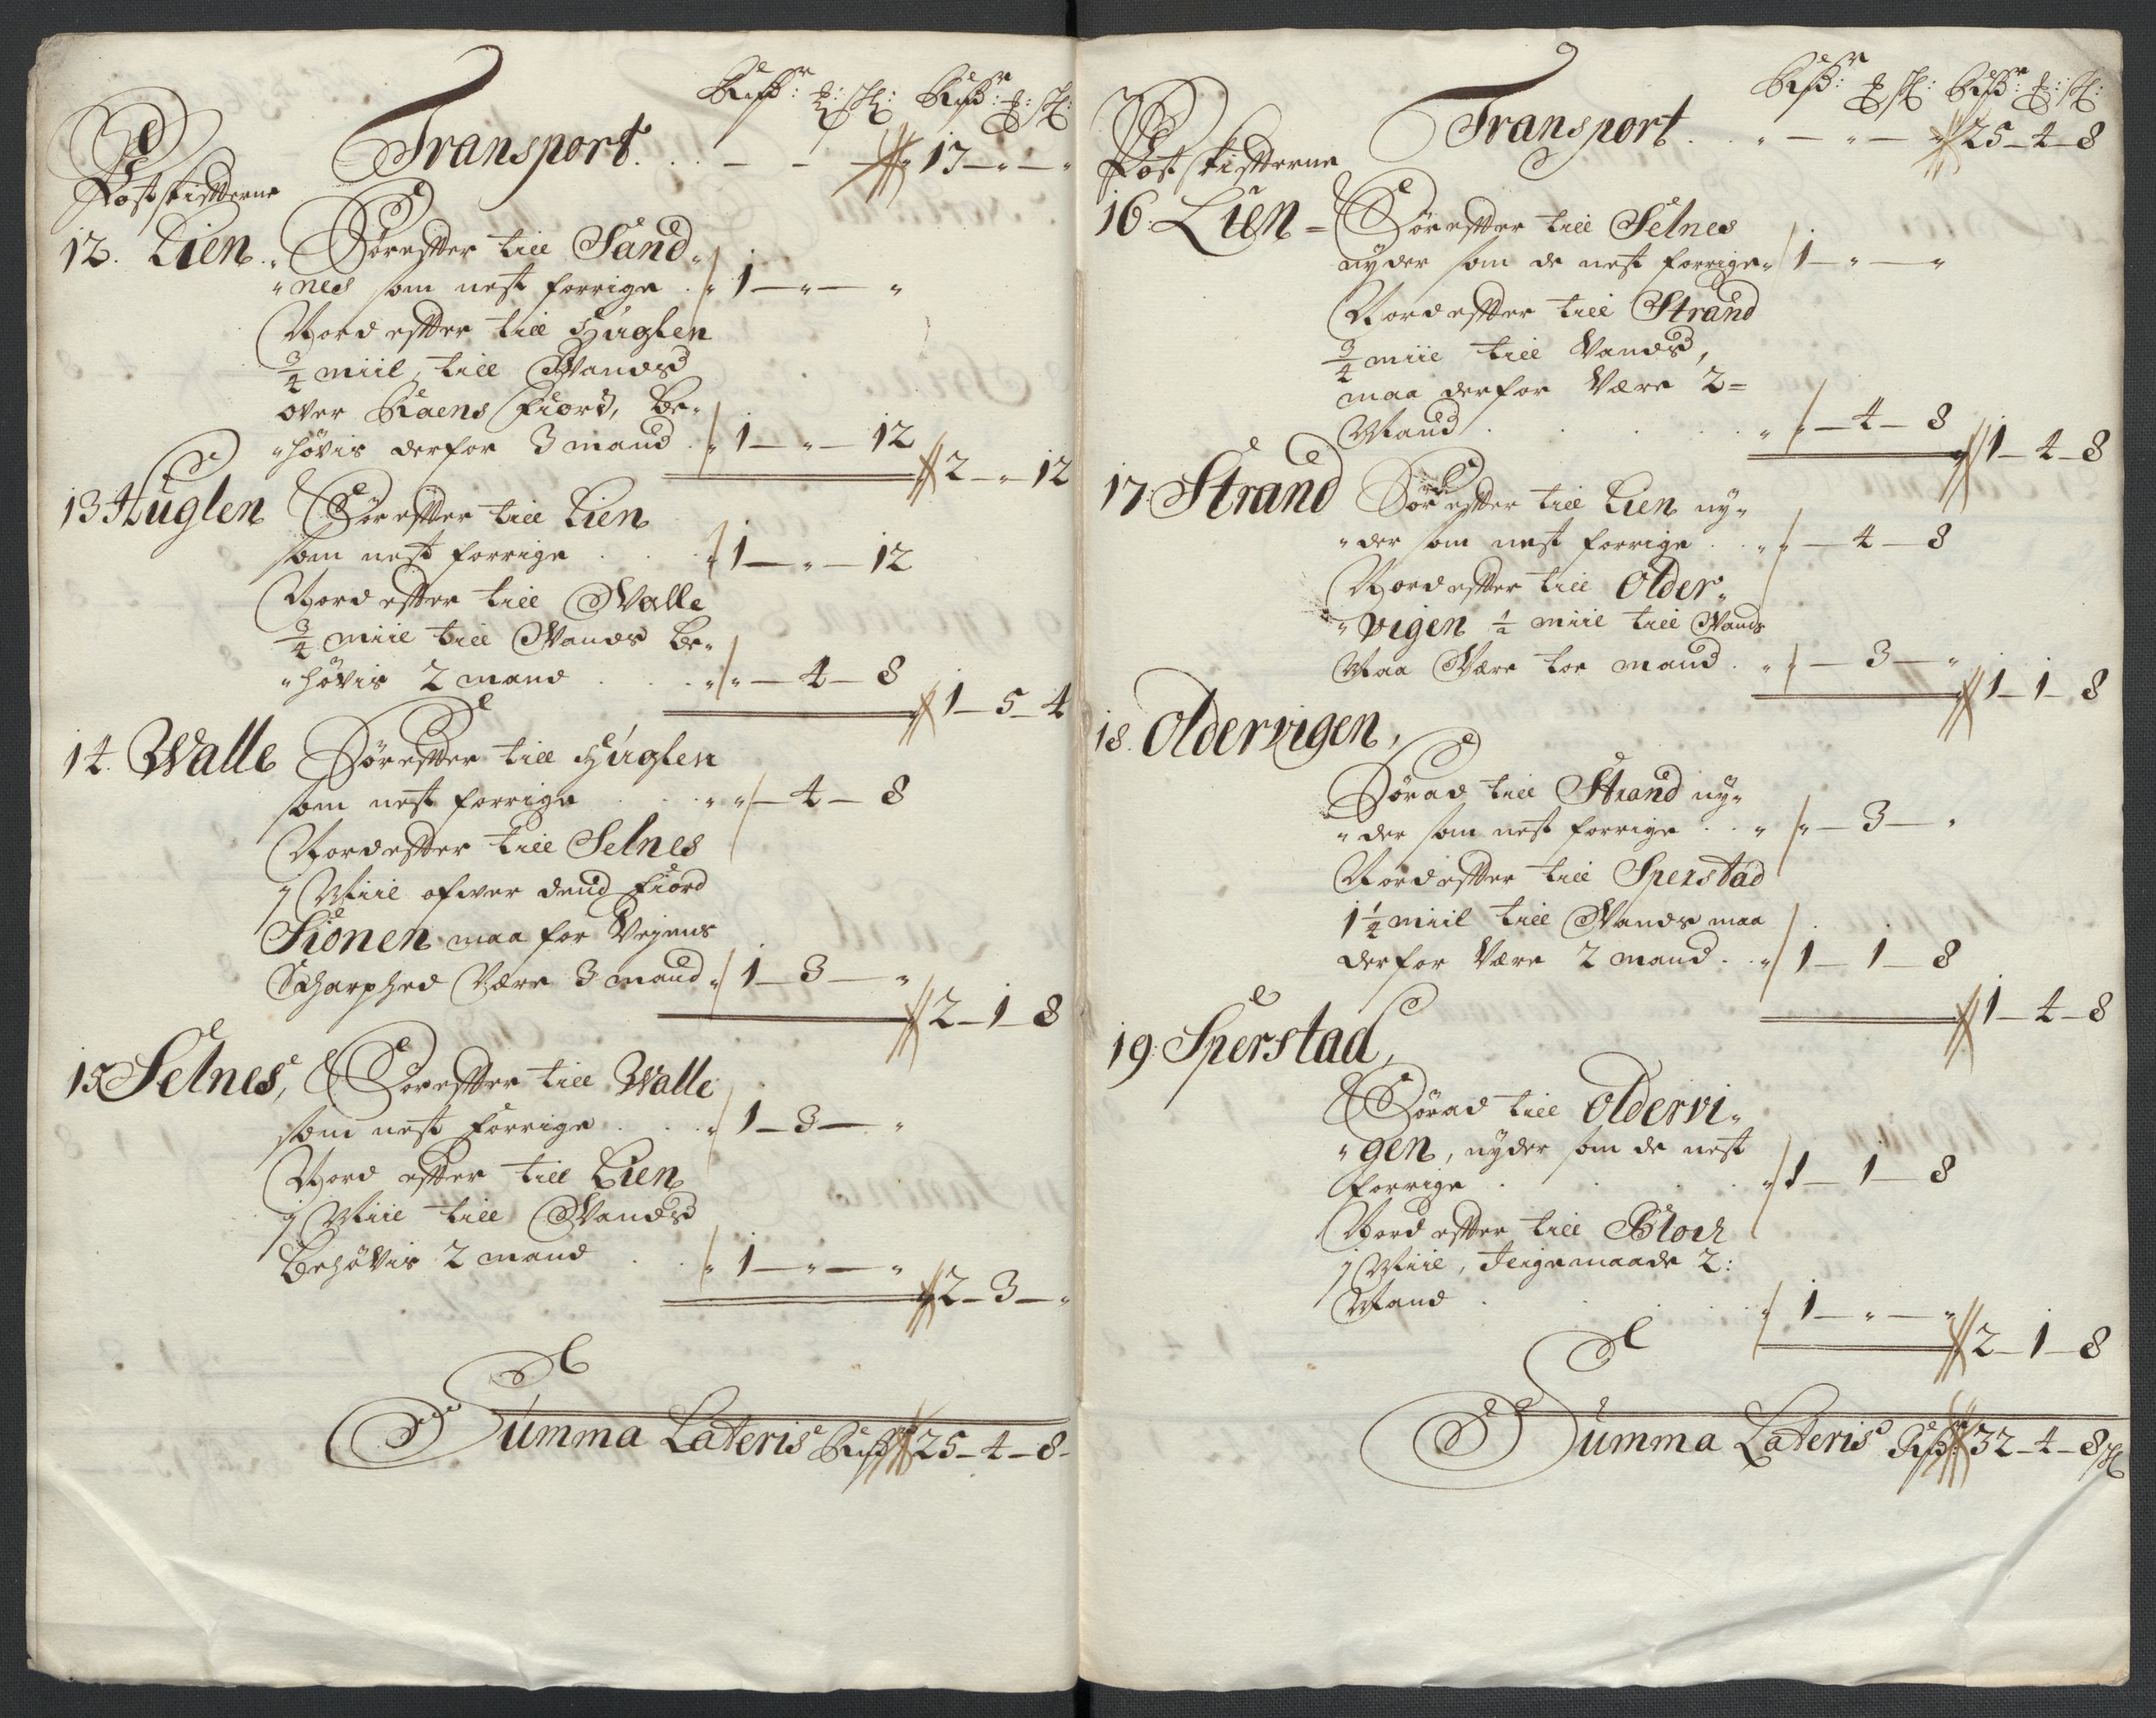 Rixdr: ₰: sk: Rixdr: ₰: sk:
Transport. . . — — — 17 — " — "
Postskifterne
12. Lien. Sør effter till Sand-
"nes som nest forrige . " 1 — " — "
Nord effter till Huglen
3/4 miil, till Wands
over Raens Fiord, be-
"høvis derfor 3 mand . " 1 — " — 12
2 — " — 12
13 Huglen Sør effter till Lien
som nest forrige . . . 1 — " — 12
Nord effter till Walle
3/4 miil till Wands be-
"høvis 2 mand . . . " " — 4 — 8
1 — 5 — 4
14. Walle Sør effter till Huglen
som nest forrige . . . " " — 4 — 8
Nord effter till Selnes
1 Miil ofwer dend Fiord
Sionen maa for Veyens
Scharphed Være 3 mand " 1 — 3 — "
2 — 1 — 8
15 Selnes, Sør effter till Walle
som nest forrige . . . " 1 — 3 — "
Nord effter till Lien
1 Miil till Wands
behøvis 2 mand . . " 1 — " — "
2 — 3 — "
Summa Lateris Rixdr 25 — 4 — 8 -
Rixdr: ₰: sk: Rixdr: ₰: sk:
Transport . . " — " — 25 — 4 — 8
Postskifterne
16: Lien = Sør effter till Selnes
nyder som de nest forrige " 1 — " — "
Nord effter till Strand
3/4 miil till Vands,
maa derfor Være 2 =
Mand . . . . " " — 4 — 8
1 — 4 — 8
17. Strand Sør effter till Lien ny-
"der som nest forrige . . " " — 4 — 8
Nord effter till Older-
"vigen 1/2 miil till Wands
Maa Være toe mand . " " — 3 — "
1 — 1 — 8
18. Oldervigen,
Sørad till Strand ny-
"der som nest forrige . . " " — 3 — "
Nord effter till Sperstad
1 1/4 miil till Wands maa
derfor Være 2 mand . . " 1 — 1 — 8
1 — 4 — 8
19: Sperstad,
Sørad till Oldervi-
"gen, nyder som de nest
forrige . . . " 1 — 1 — 8
Nord effter till Bloch
1 Miil, Ligemaade 2:
Mand . . . . " 1 — " — "
2 — 1 — 8
Summa Lateris Rixdr: 32 — 4 — 8 sk